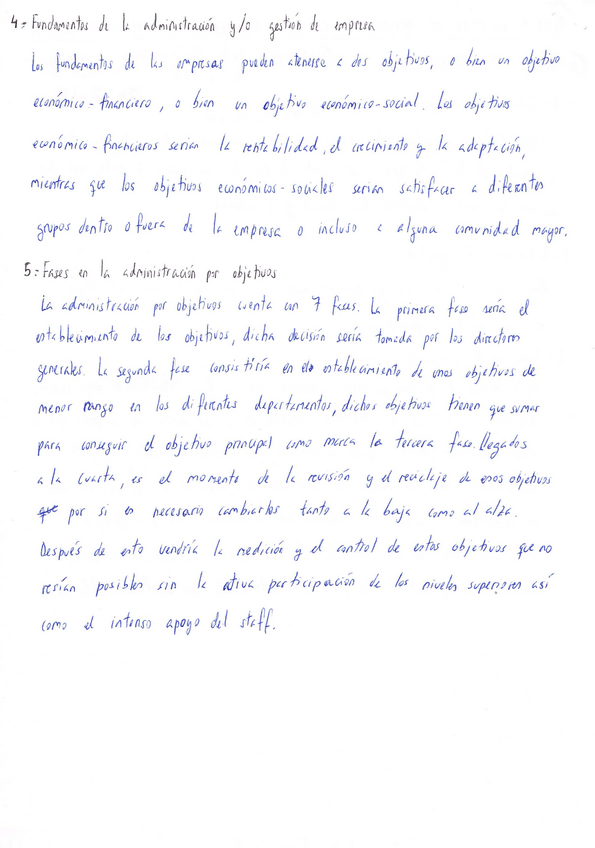 4= Fundamentos de la administración y/o gestión de empresa
Los fundamentos de las empresas pueden atenerse a dos objetivos, o bien un objetivo
económico-financiero, o bien un objetivo económico-social. Los objetivos
económico-financieros serian la rentabilidad, el crecimiento y la adaptación,
mientras que los objetivos económicos-sociales serian satisfacer a diferentes
grupos dentro o fuera de la empresa o incluso a alguna comunidad mayor.
5= Fases en la administración por objetivos
La administración por objetivos cuenta con 7 fases. La primera fase sería el
establecimiento de los objetivos, dicha decisión sería tomada por los directores
generales. La segunda fase consistiría en el establecimiento de unos objetivos de
menor rango en los diferentes departamentos, dichos objetivos tienen que sumar
para conseguir el objetivo principal como marca la tercera fase. Llegados
a la cuarta, es el momento de la revisión y el reciclaje de esos objetivos
que por si es necesario cambiarlos tanto a la baja como al alza.
Después de esto vendría la medición y el control de estos objetivos que no
serían posibles sin la ativa participación de los niveles superiores así
como el intenso apoyo del staff.